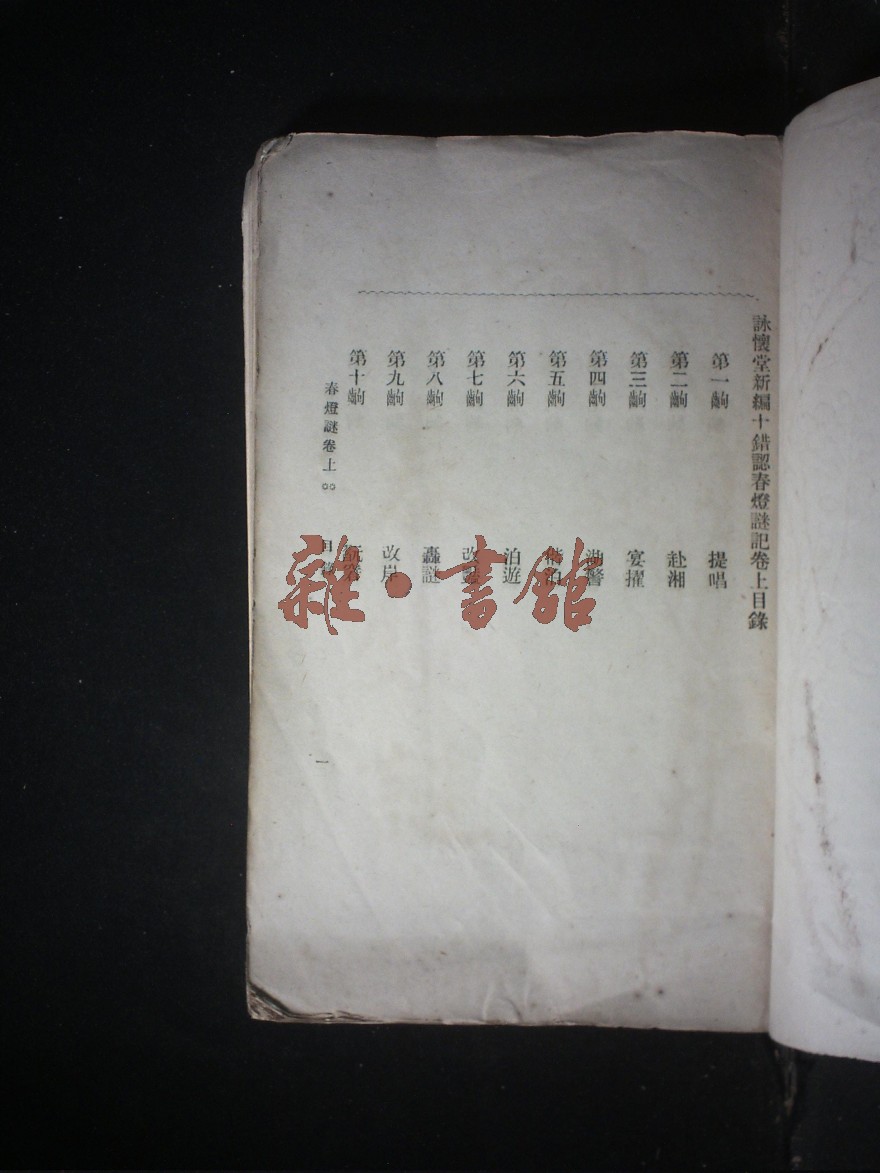 詠懷堂新編十錯認春燈謎記卷上目錄
第一齣 提唱
第二齣 赴湘
第三齣 宴擢
第四齣 湖警
第五齣 泊
第六齣 泊遊
第七齣 改
第八齣 轟謎
第九齣 改岸
第十齣
春燈謎卷上 目
一
雜·書館